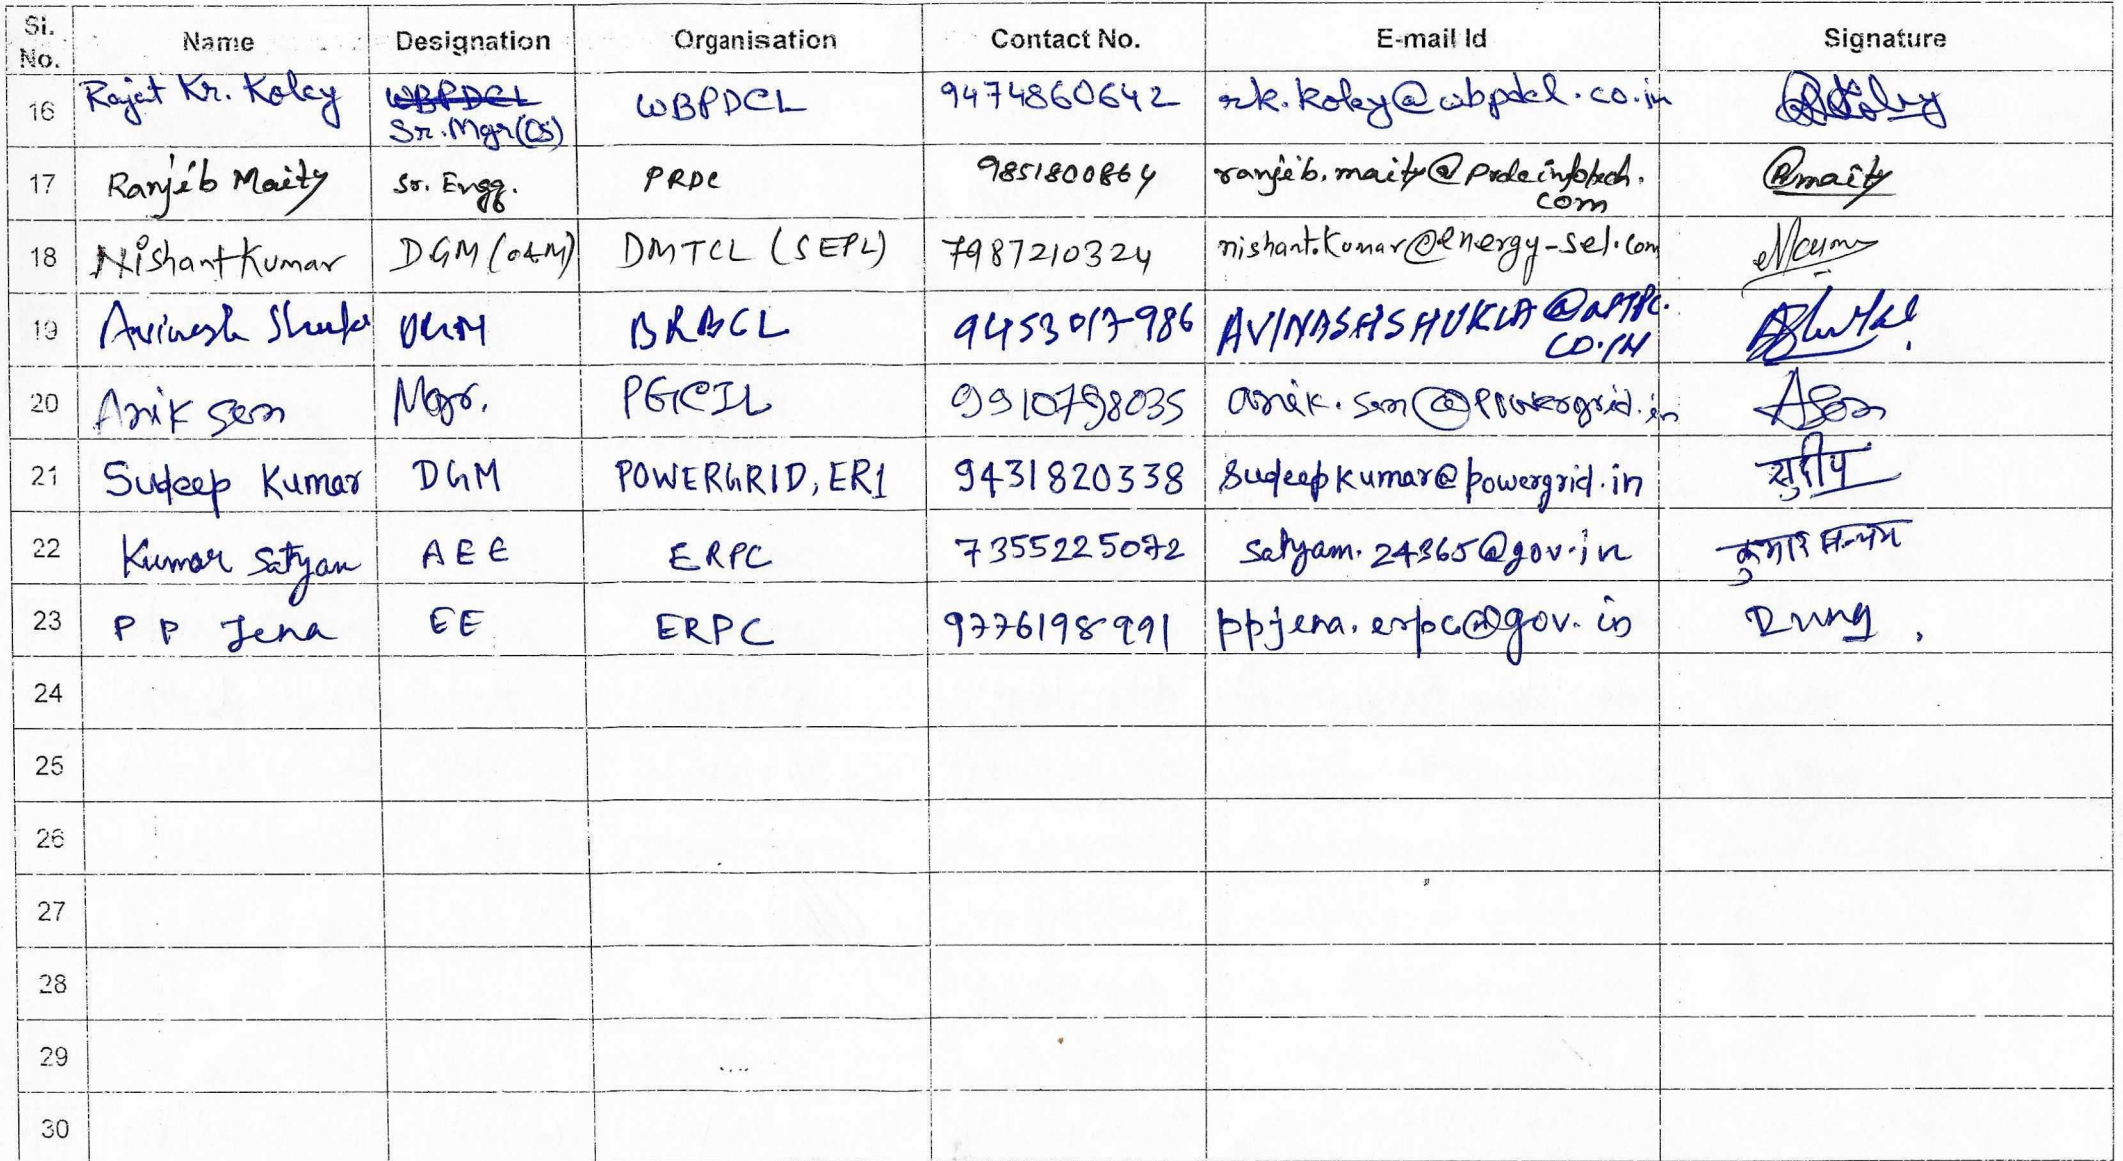 Sl. No. Name Designation Organisation Contact No. E-mail Id Signature
16 Rajat Kr. Koley WBPDCL WBPDCL 9474860642 rk.koley@wbpdcl.co.in
Sr. Mgr(OS)
17 Ranjib Maity Sr. Engg. PRDC 9851800864 ranjib.maity@prdcinfotech.
com
18 Nishant Kumar DGM (O&M) DMTCL (SEPL) 7987210324 nishant.kumar@energy-sel.com
19 Avinash Shukla DGM BRBCL 9453017986 AVINASHSHUKLA@NTPC.
CO.IN
20 Anik Sen Mgr. PGCIL 9910798035 anik.sen@powergrid.in ASen
21 Sudeep Kumar DGM POWERGRID, ER1 9431820338 sudeepkumar@powergrid.in सुदीप
22 Kumar Satyam AEE ERPC 7355225072 satyam.24365@gov.in कुमार सत्यम
23 P P Jena EE ERPC 9776198991 ppjena.erpc@gov.in
24
25
26
27
28
29
30